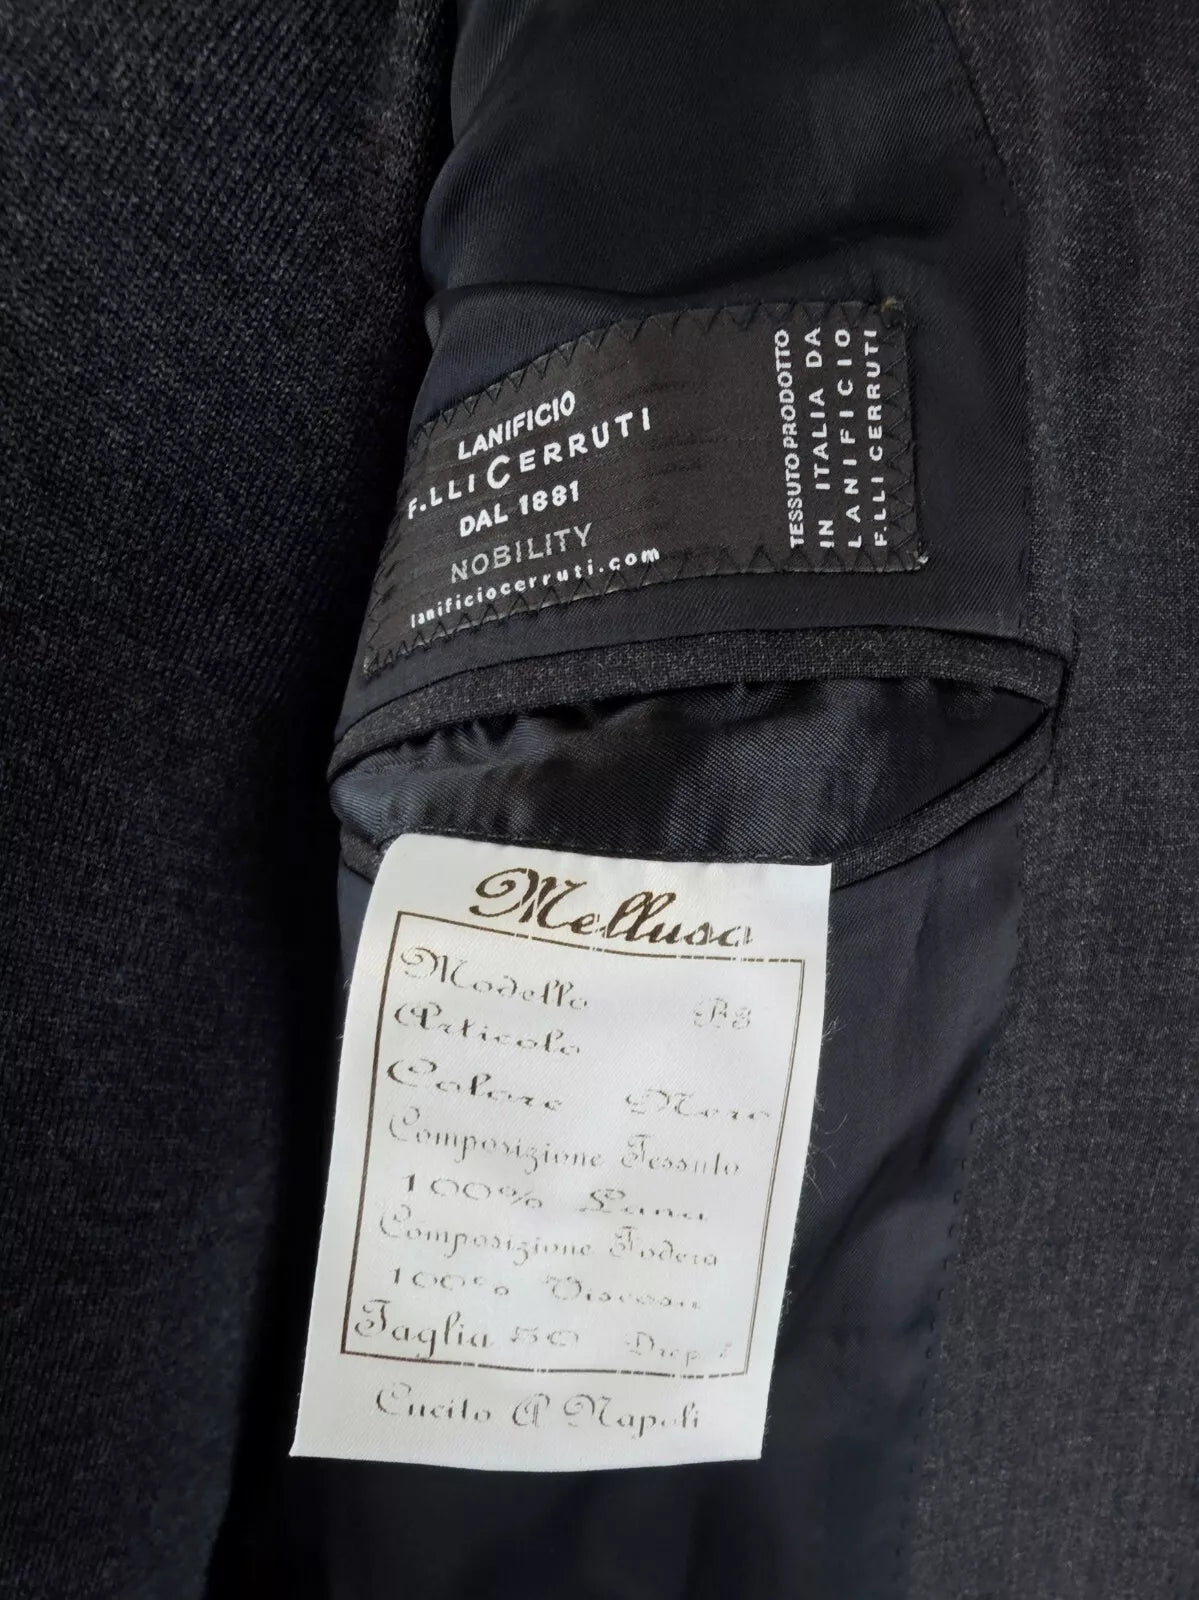 LANIFICIO
F.LLI CERRUTI
DAL 1881
NOBILITY
lanificiocerruti.com
TESSUTO PRODOTTO
IN ITALIA DA
LANIFICIO
F.LLI CERRUTI
Mellusa
Modello
Articolo
Colore Nero
Composizione Tessuto
100% Lana
Composizione Fodera
100% Viscosa
Taglia 50 Drop
Cucito A Napoli